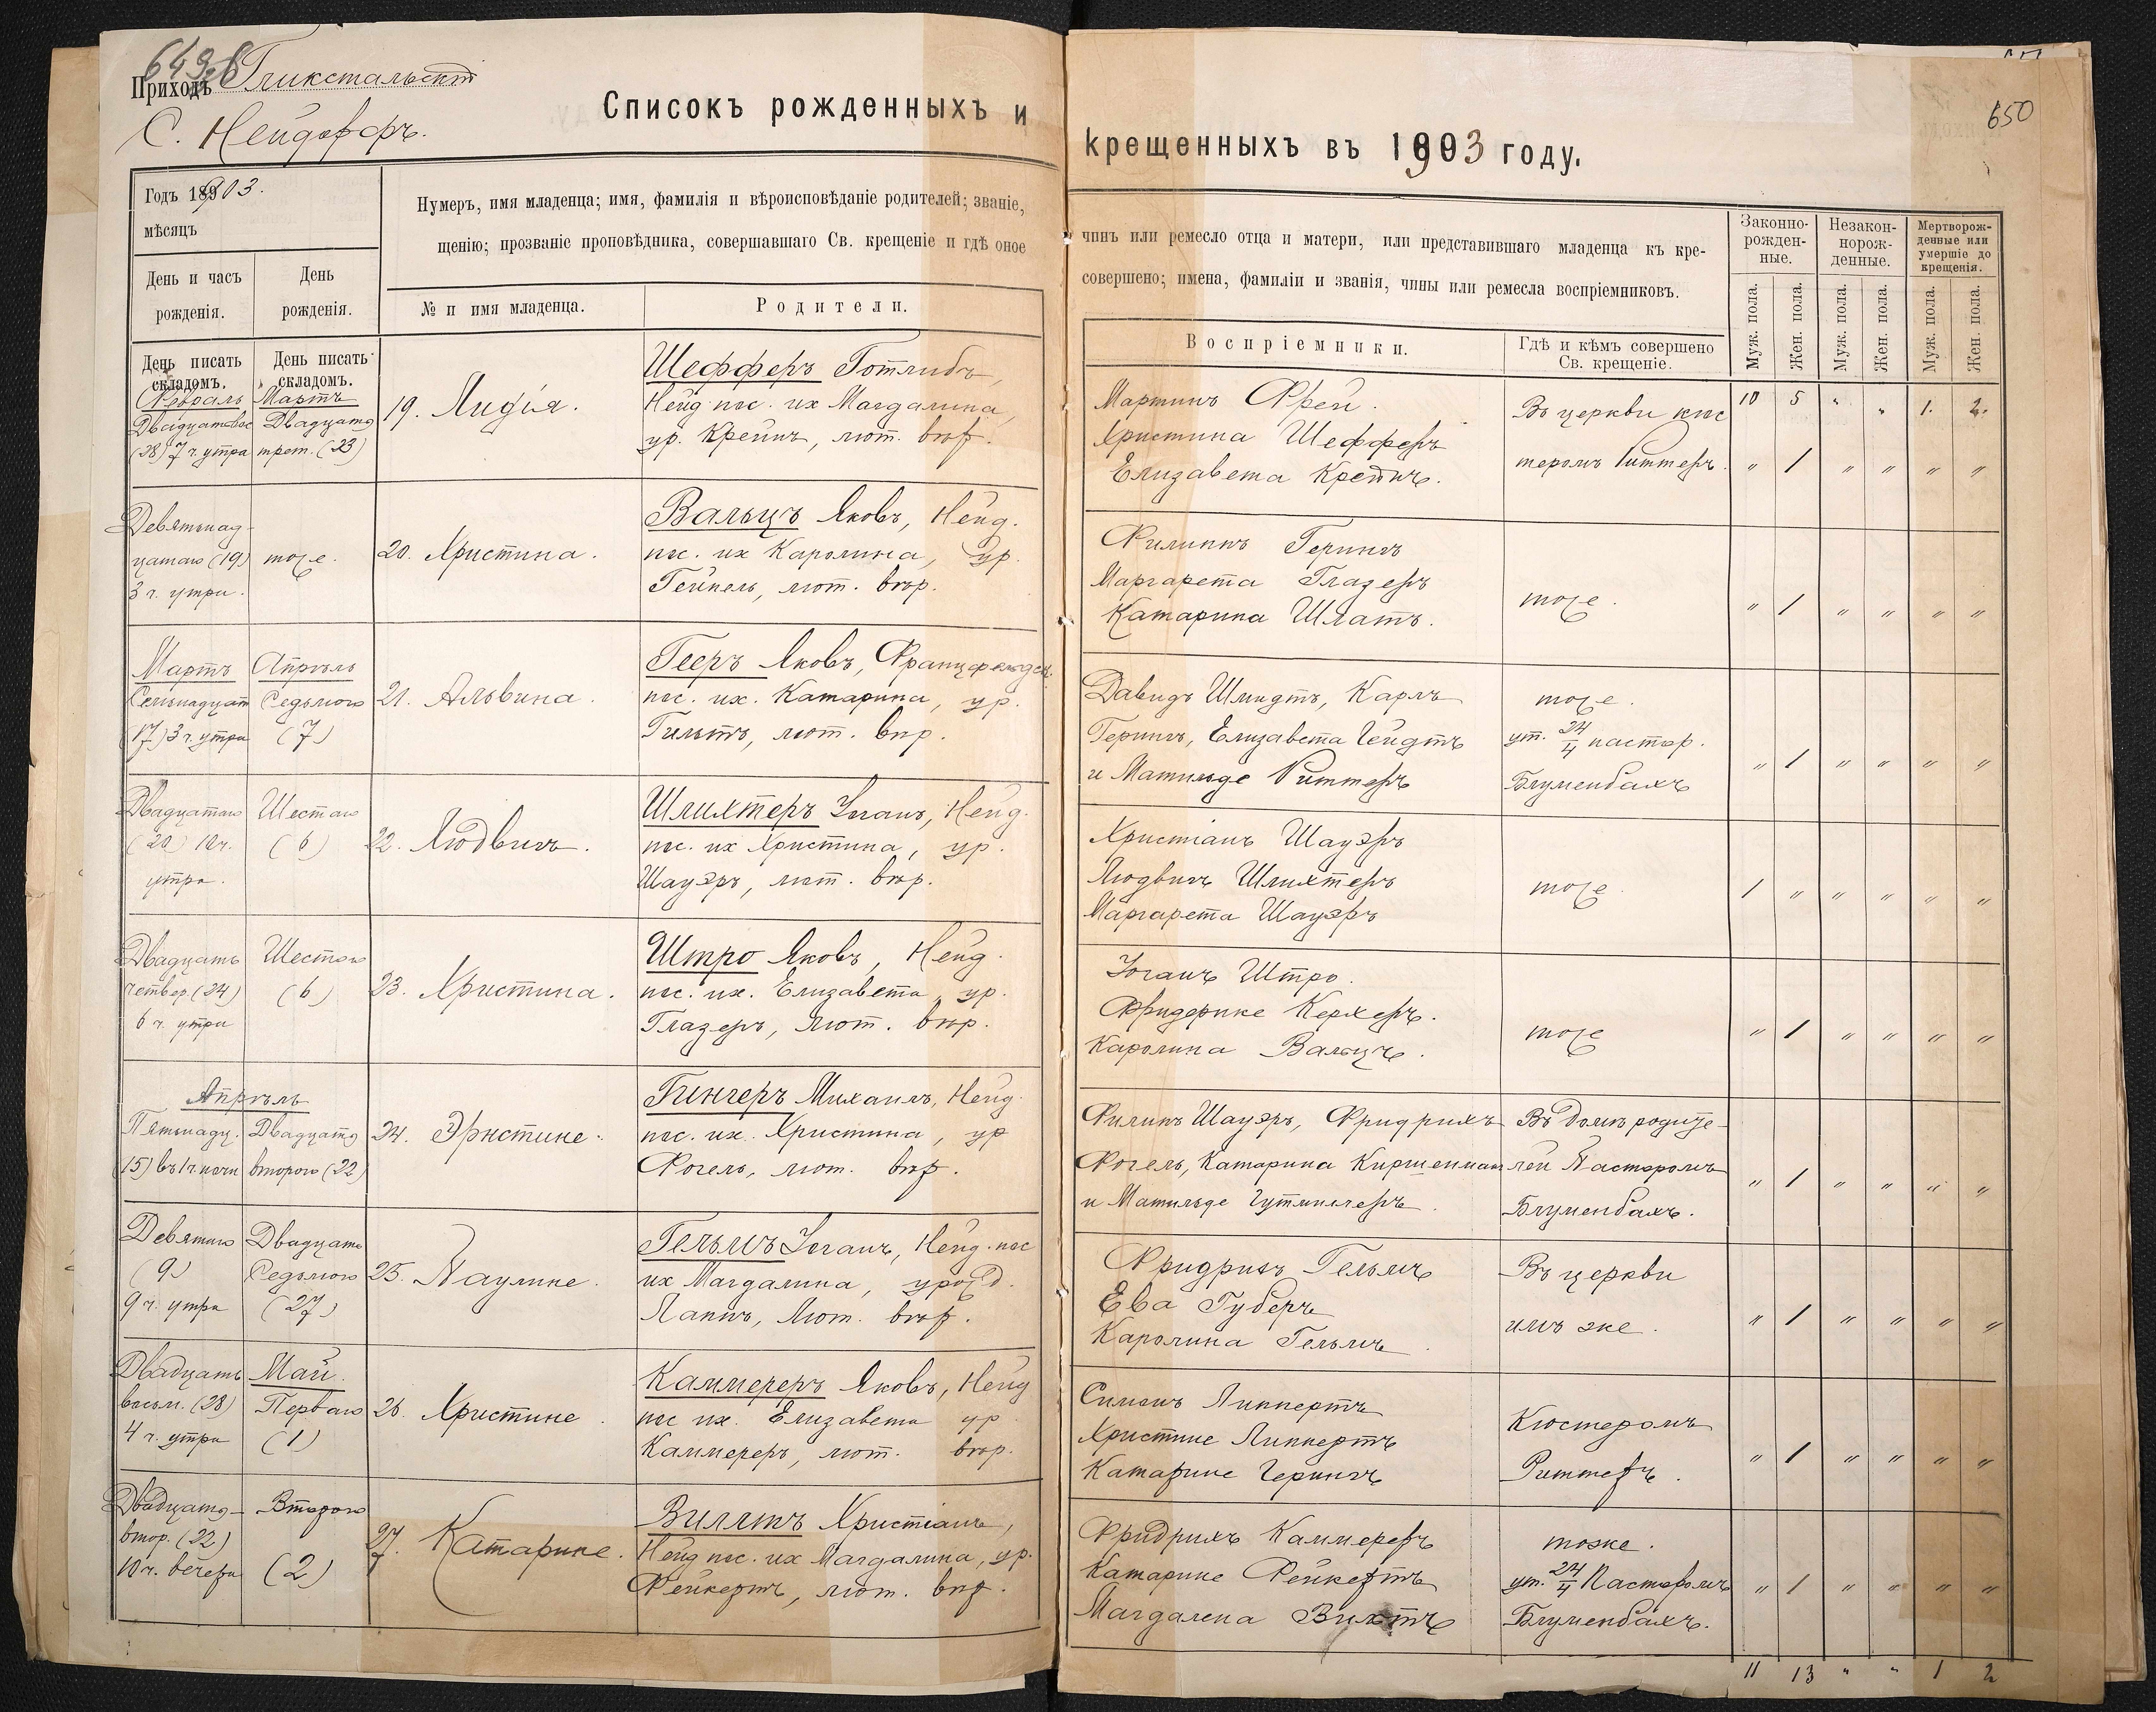 649об
Приходъ Гликстальскій
С. Нейдорфъ.
Списокъ рожденныхъ и
Годъ 1903.
мѣсяцъ
День и часъ рожденія.
День рожденія.
Нумеръ, имя младенца; имя, фамилія и вѣроисповѣданіе родителей; званіе,
щенію; прозваніе проповѣдника, совершавшаго Св. крещеніе и гдѣ оное
№ и имя младенца.
Родители.
День писать складомъ.
День писать складомъ.
Февраль
Мартъ
(28) 7 ч. утра
Двадцать
трет. (23)
19. Лидія.
Шефферъ Готлибъ,
Нейд. пос. их Магдалина,
ур. Крейнъ, лют. вѣр.
Девятнад-
цатаго (19)
3 ч. утра.
тоже.
20. Христина.
Вальцъ Яковъ, Нейд.
пос. их Каролина, ур.
Гейпель, лют. вѣр.
Мартъ
Апрѣль
Семьнадцат
(17) 3 ч. утра
Седьмого
(7)
21. Альвина.
Гееръ Яковъ, Францфельд.
пос. их. Катарина, ур.
Гильтъ, лют. вѣр.
Двадцатаго
(20) 10 ч.
утра.
Шестаго
(6)
22. Людвигъ.
Шлихтеръ Іоганъ, Нейд.
пос. их Христина, ур.
Шауэръ, лют. вѣр.
Двадцать
четвер. (24)
6 ч. утра
Шестого
(6)
23. Христина.
Штро Яковъ, Нейд.
пос. их. Елизавета, ур.
Глазеръ, лют. вѣр.
Апрѣль
Пятьнадц.
(15) въ 1 ч ночи
Двадцать
второго (22)
24. Эрнстине.
Гингеръ Михаилъ, Нейд.
пос. их. Христина, ур
Фогель, лют. вѣр.
Девятаго
(9)
9 ч. утра
Двадцать
Седьмого
(27)
25. Паулине.
Гельмъ Іоганъ, Нейд. пос
их Магдалина, урожд.
Лаппъ, Лют. вѣр.
Двадцать
восьм. (28)
4 ч. утра
Май.
Перваго
(1)
26. Христине.
Каммереръ Яковъ, Нейд
пос их. Елизавета ур
Каммереръ, лют. вѣр.
Двадцать-
втор. (22)
10 ч. вечера
Второго
(2)
27. Катарине.
Вилльтъ Христіанъ,
Нейд пос. их Магдалина, ур.
Рейкертъ, лют. вѣр.
650
крещенныхъ въ 1903 году.
чинъ или ремесло отца и матери, или представившаго младенца къ кре-
совершено; имена, фамиліи и званія, чины или ремесла воспріемниковъ.
Законно-рожден-ные.
Незакон-норож-денные.
Мертворож-денные или умершіе до крещенія.
Воспріемники.
Гдѣ и кѣмъ совершено Св. крещеніе.
Муж. пола.
Жен. пола.
Муж. пола.
Жен. пола.
Муж. пола.
Жен. пола.
Мартинъ Фрей.
Христина Шефферъ
Елизавета Крейнъ.
Въ церкви кюс
теромъ Риттеръ.
10 5 „ „ 1. 2.
„ 1 „ „ „ „
Филиппъ Герингъ
Маргарета Глазеръ
Катарина Шлатъ.
тоже.
„ 1 „ „ „ „
Давидъ Шмидтъ, Карлъ
Герингъ, Елизавета Гейдтъ
и Матильде Риттеръ
тоже.
ут. 24/4 пастор.
Блуменбахъ
„ 1 „ „ „ „
Христіанъ Шауэръ
Людвигъ Шлихтеръ
Маргарета Шауэръ
тоже.
1 „ „ „ „ „
Іоганъ Штро.
Фридерике Керхеръ.
Каролина Вальцъ.
тоже
„ 1 „ „ „ „
Филипъ Шауэръ, Фридрихъ
Фогель, Катарина Киршенман
и Матильде Гутмиллеръ.
Въ домѣ родите-
лей Пасторомъ
Блуменбахъ.
„ 1 „ „ „ „
Фридрихъ Гельмъ
Ева Губеръ
Каролина Гельмъ.
Въ церкви
имъ же.
„ 1 „ „ „ „
Симонъ Липпертъ
Христине Липпертъ
Катарине Герингъ
Кюстеромъ
Риттеръ.
„ 1 „ „ „ „
Фридрихъ Каммереръ
Катарине Рейкертъ
Магдалена Вихтъ
тоже.
ут. 24/4 Пасторомъ
Блуменбахъ.
„ 1 „ „ „ „
11 13 „ „ 1 2